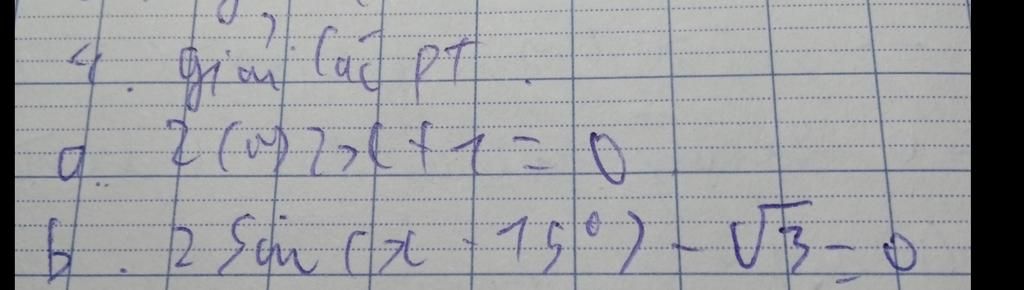 4. giải các PT.
a. 2 cos 2x + 1 = 0
b. 2 Sin (x - 15°) - √3 = 0